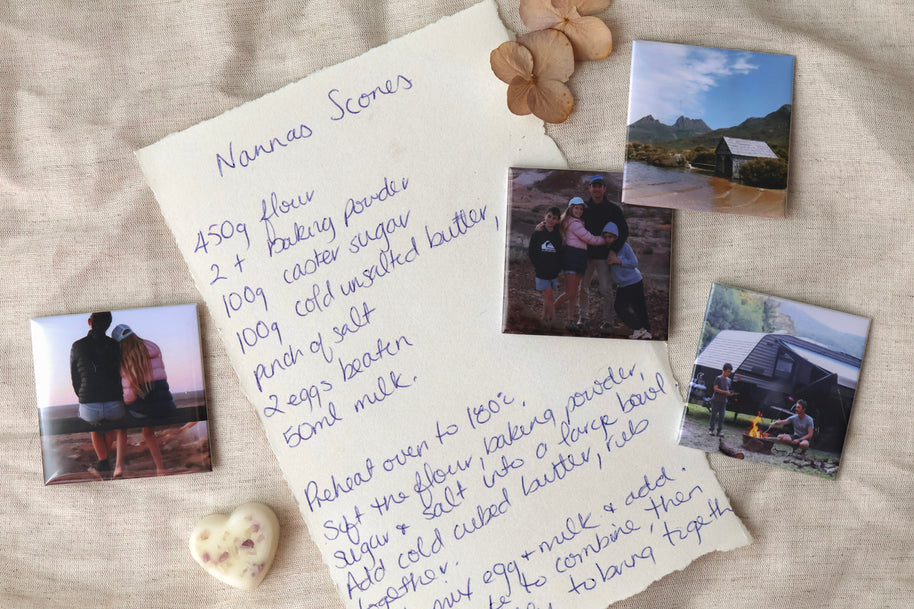 Nannas Scones
450g flour
2 t baking powder
100g caster sugar
100g cold unsalted butter,
pinch of salt
2 eggs beaten
50ml milk.
Preheat oven to 180°c,
Sift the flour, baking powder,
sugar & salt into a large bowl
Add cold cubed butter, rub
together.
mix egg + milk & add.
to combine, then
to bring together